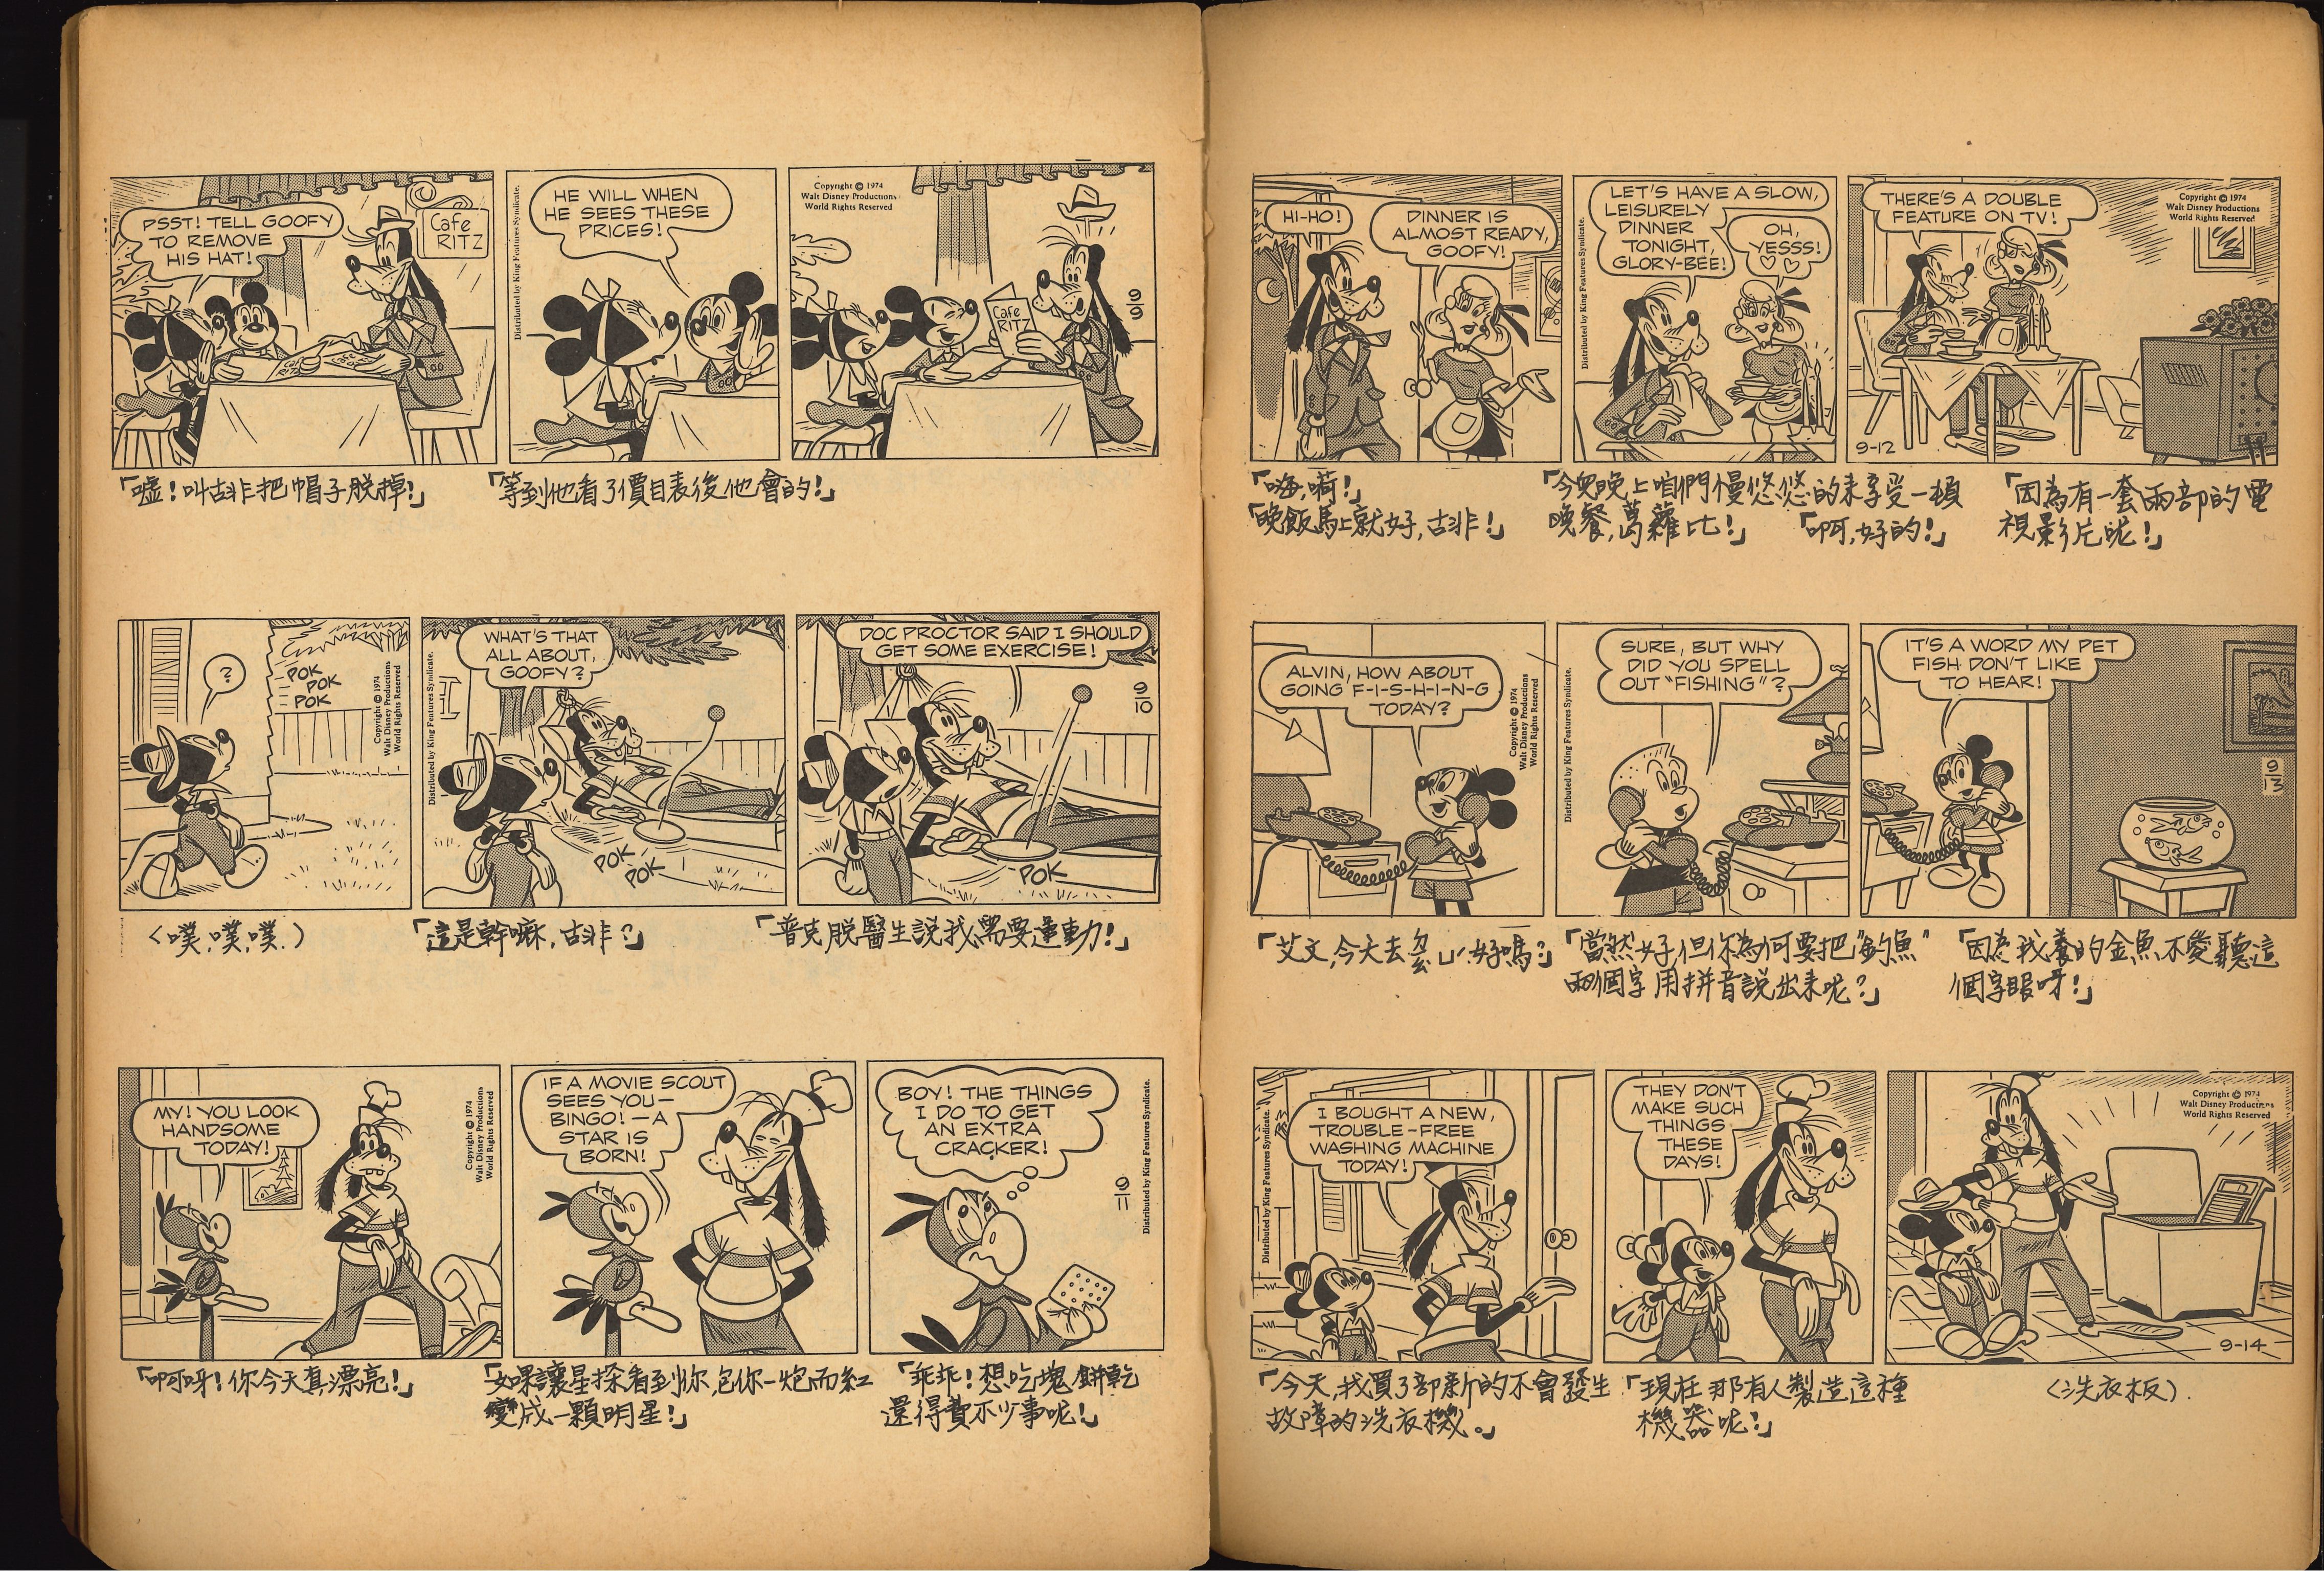 PSST! TELL GOOFY
TO REMOVE
HIS HAT!
Cafe
RITZ
Distributed by King Features Syndicate.
HE WILL WHEN
HE SEES THESE
PRICES!
Copyright © 1974
Walt Disney Productions
World Rights Reserved
Cafe
RITZ
9/9
「噓!叫古非把帽子脫掉!」
「等到他看了價目表後他會的!」
?
POK
POK
POK
Copyright © 1974
Walt Disney Productions
World Rights Reserved
Distributed by King Features Syndicate.
WHAT'S THAT
ALL ABOUT,
GOOFY?
POK
POK
DOC PROCTOR SAID I SHOULD
GET SOME EXERCISE!
POK
9/10
〈噗,噗,噗.〉
「這是幹嘛,古非?」
「普克脫醫生說我需要運動!」
MY! YOU LOOK
HANDSOME
TODAY!
Copyright © 1974
Walt Disney Productions
World Rights Reserved
IF A MOVIE SCOUT
SEES YOU—
BINGO!—A
STAR IS
BORN!
BOY! THE THINGS
I DO TO GET
AN EXTRA
CRACKER!
9/11
Distributed by King Features Syndicate.
「啊呀!你今天真漂亮!」
「如果讓星探看到你,包你一炮而紅
變成一顆明星!」
「乖乖!想吃塊餅乾
還得費不少事呢!」
HI-HO!
DINNER IS
ALMOST READY,
GOOFY!
Distributed by King Features Syndicate.
LET'S HAVE A SLOW,
LEISURELY
DINNER
TONIGHT,
GLORY-BEE!
OH,
YESSS!
♡ ♡
THERE'S A DOUBLE
FEATURE ON TV!
Copyright © 1974
Walt Disney Productions
World Rights Reserved
9-12
「嗨,嗬!」
「晚飯馬上就好,古非!」
「今兒晚上咱們慢悠悠的來享受一頓
晚餐,葛蘿比!」
「啊,好的!」
「因為有一套兩部的電
視影片呢!」
ALVIN, HOW ABOUT
GOING F-I-S-H-I-N-G
TODAY?
Copyright © 1974
Walt Disney Productions
World Rights Reserved
Distributed by King Features Syndicate.
SURE, BUT WHY
DID YOU SPELL
OUT "FISHING"?
IT'S A WORD MY PET
FISH DON'T LIKE
TO HEAR!
9/13
「艾文,今天去ㄉㄧㄠˋㄩˊ好嗎?」
「當然好,但你為何要把"釣魚"
兩個字用拼音說出來呢?」
「因為我養的金魚不愛聽這
個字眼呀!」
Distributed by King Features Syndicate.
I BOUGHT A NEW,
TROUBLE-FREE
WASHING MACHINE
TODAY!
THEY DON'T
MAKE SUCH
THINGS
THESE
DAYS!
Copyright © 1974
Walt Disney Productions
World Rights Reserved
9-14
「今天,我買了部新的不會發生
故障的洗衣機。」
「現在那有人製造這種
機器呢!」
〈洗衣板〉.